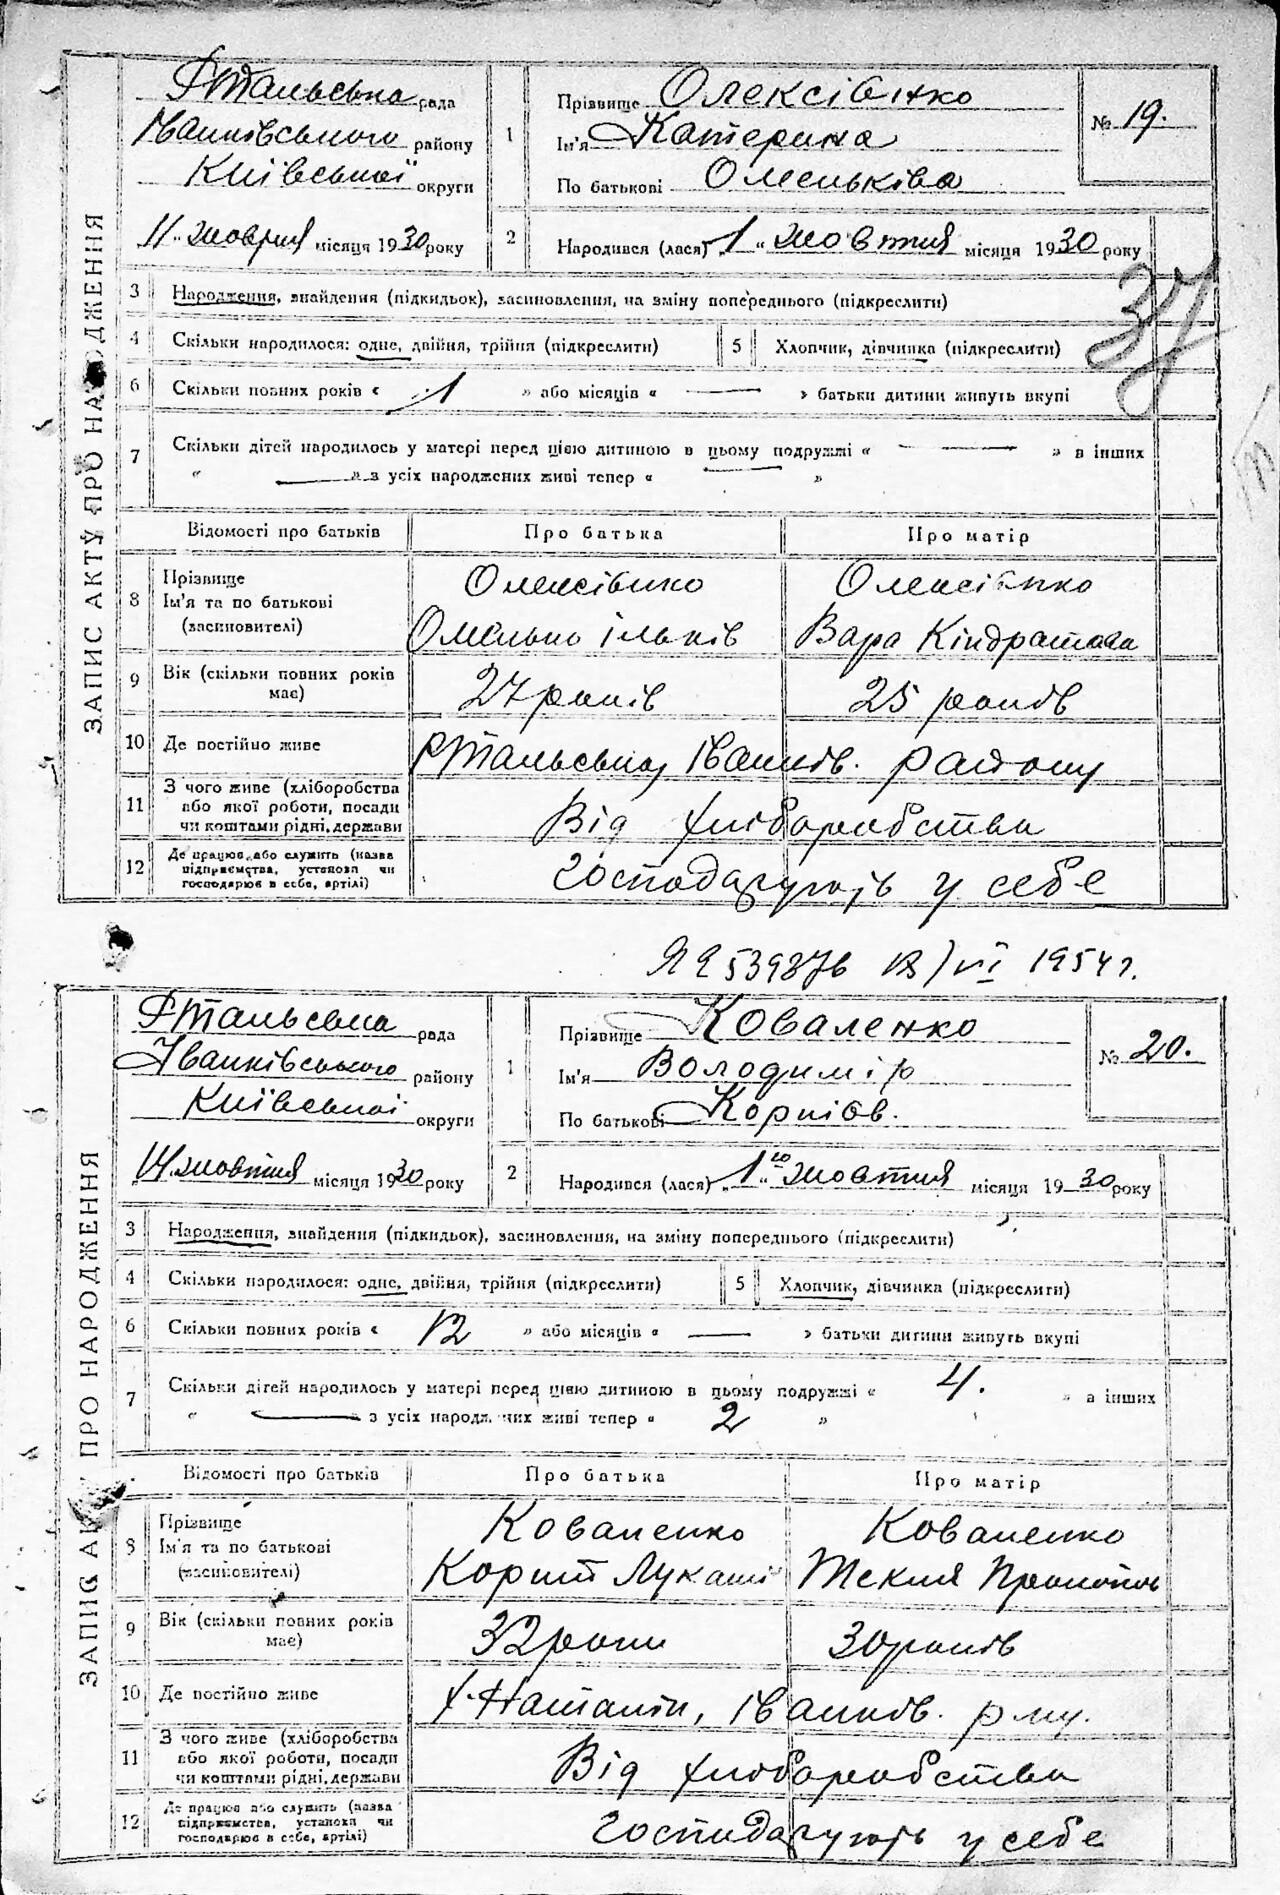 ЗАПИС АКТУ ПРО НАРОДЖЕННЯ
Ртальська рада
Іванківського району
Київської округи
11 " жовтня місяця 1930 року
1
Прізвище Олексієнко
Ім'я Катерина
По батькові Омельківа
№ 19.
2 Народився (лася) „1" жовтня місяця 1930 року
37
3 Народження, знайдення (підкидьок), засиновлення, на зміну попереднього (підкреслити)
4 Скільки народилося: одне, двійня, трійня (підкреслити) 5 Хлопчик, дівчинка (підкреслити)
6 Скільки повних років « 1 » або місяців « — » батьки дитини живуть вкупі
7 Скільки дітей народилось у матері перед цією дитиною в цьому подружжі « — » в інших
« — » з усіх народжених живі тепер « — »
Відомості про батьків Про батька Про матір
8 Прізвище Олексієнко Олексієнко
Ім'я та по батькові
(засиновителі) Омелько Ільків Вара Кіндратова
9 Вік (скільки повних років має) 27 років 25 років
10 Де постійно живе Ртальська, Іванків. району
11 З чого живе (хліборобства або якої роботи, посади чи коштами рідні, держави Від хліборобства
12 Де працює або служить (назва підприємства, установа чи господарює в себе, артілі) господарують у себе
539876 12/VI 1954 г.
ЗАПИС АКТУ ПРО НАРОДЖЕННЯ
Ртальська рада
Іванківського району
Київської округи
14 жовтня місяця 1930 року
1
Прізвище Коваленко
Ім'я Володимір
По батькові Корніїв.
№ 20.
2 Народився (лася) „1го" жовтня місяця 1930 року
3 Народження, знайдення (підкидьок), засиновлення, на зміну попереднього (підкреслити)
4 Скільки народилося: одне, двійня, трійня (підкреслити) 5 Хлопчик, дівчинка (підкреслити)
6 Скільки повних років « 12 » або місяців « — » батьки дитини живуть вкупі
7 Скільки дітей народилось у матері перед цією дитиною в цьому подружжі « 4. » в інших
« — » з усіх народжених живі тепер « 2 »
Відомості про батьків Про батька Про матір
8 Прізвище Коваленко Коваленко
Ім'я та по батькові
(засиновителі) Корній Лукаш Текля
9 Вік (скільки повних років має) 32 роки 30 років
10 Де постійно живе х. Наталін, Іванків. р-ну.
11 З чого живе (хліборобства або якої роботи, посади чи коштами рідні, держави Від хліборобства
12 Де працює або служить (назва підприємства, установа чи господарює в себе, артілі) господарують у себе